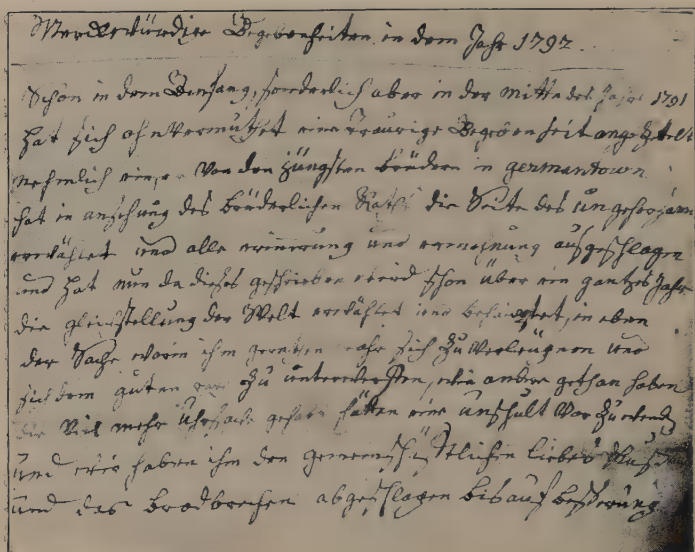 Merckwürdige Begebenheiten in dem Jahr 1792
Schon in dem Anfang, sonderlich aber in der mitte des Jahrs 1791
hat sich ohnvermuthet eine traurige Begebenheit
nehmlich einer von den jüngsten brüdern in germantown
hat in ansehung des brüderlichen Raths die Seite des ungehorsam
erwählet und alle erinnerung und ermahnung ausgeschlagen
und hat nun da dieses geschrieben wird schon über ein gantzes Jahr
die gleichstellung der Welt erwählet und in eben
der Sache worin ihm gerathen sich zu verleugnen und
sich dem guten zu unterwerffen, wie andre gethan haben
die viel mehr uhrsach gehabt hätten eine unschult vor zu wenden
und wir haben ihm den gemeinschafftlichen liebes
und das brodbrechen abgeschlagen bis auf besserung